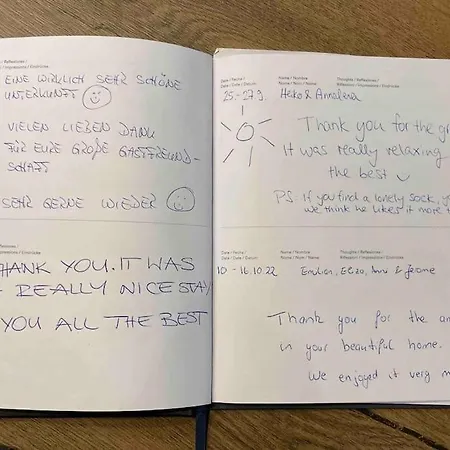 / Reflexiones /
/ Impressions / Eindrücke
EINE WIRKLICH SEHR SCHÖNE
UNTERKUNFT
VIELEN LIEBEN DANK
FÜR EURE GROßE GASTFREUND-
SCHAFT
SEHR GERNE WIEDER
/ Reflexiones /
/ Impressions / Eindrücke
THANK YOU. IT WAS
REALLY NICE STAY
YOU ALL THE BEST
Date / Fecha / Date / Data / Datum:
Name / Nombre / Name / Nom / Name:
Thoughts / Reflexiones / Riflessioni / Impressions / Eindrücke:
25.-27.9. Heko & Annalena
Thank you for the
It was really relaxing
the best
PS: if you find a lonely sock,
we think he likes it more
Date / Fecha / Date / Data / Datum:
Name / Nombre / Name / Nom / Name:
Thoughts / Reflexiones / Riflessioni / Impressions / Eindrücke:
10 - 16.10.22 Emilien, Enzo, Anna & Jérome
Thank you for the
in your beautiful home.
We enjoyed it very